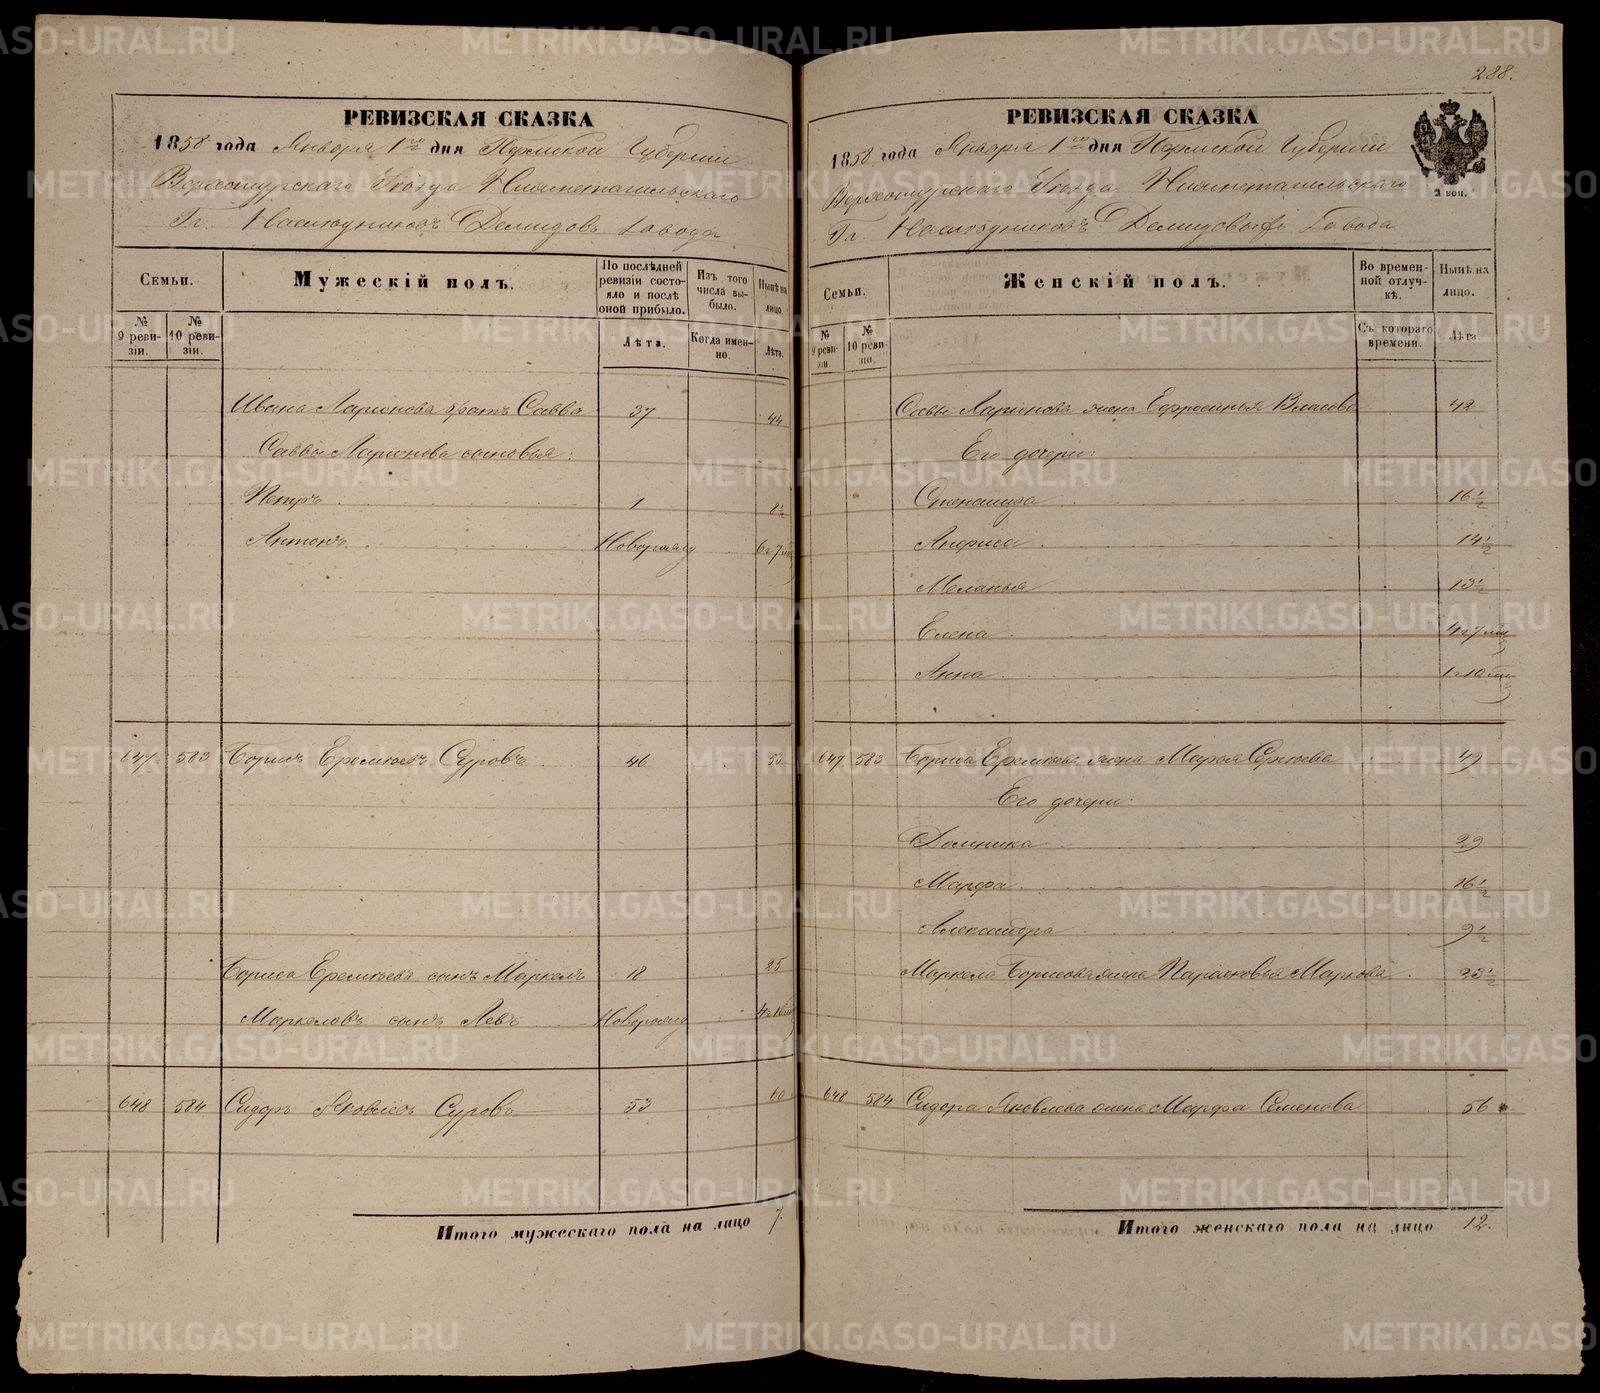 288.
РЕВИЗСКАЯ СКАЗКА
1858 года Января 1го дня Пермской Губернiи
Верхотурскаго Уѣзда Нижнетагильскаго
Гг. Наслѣдниковъ Демидовыхъ Завода
Семьи.
Мужескій полъ.
По послѣдней ревизіи состояло и послѣ оной прибыло.
Изъ того числа выбыло.
Нынѣ на лицо
№ 9 ревизіи.
№ 10 ревизіи.
Лѣта.
Когда именно.
Лѣта.
Ивана Ларіонова братъ Савва 37 44
Саввы Ларіонова сыновья:
Петръ 1 8½
Антонъ Новорожд 6 г 7 м
647 583 Борисъ Еремѣевъ Суровъ 46 53
Бориса Еремѣева сынъ Маркелъ 18 25
Маркеловъ сынъ Левъ Новорожд
648 584 Сидоръ Яковлевъ Суровъ 53 60
Итого мужескаго пола на лицо 7.
РЕВИЗСКАЯ СКАЗКА
1858 года Января 1го дня Пермской Губерніи
Верхотурскаго Уѣзда Нижнетагильскаго
Гг. Наслѣдниковъ Демидовыхъ Завода
2 коп.
Семьи.
Женскій полъ.
Во временной отлучкѣ.
Нынѣ на лицо.
№ 9 ревизіи.
№ 10 ревизіи.
Съ котораго времени.
Лѣта.
Савы Ларіонова жена Ефросинья Власова 42
Его дочери:
Степанида 16½
Анфиса 14½
Меланья 13½
Елена 4 г 7 м
Анна 1 г 10 м
647 583 Бориса Еремѣева жена Марья Сергѣева 49
Его дочери:
Домника 29
Марфа 16½
Александра 9½
Маркела Борисова жена Парасковья Маркова 23½
648 584 Сидора Яковлева жена Марфа Семенова 56
Итого женскаго пола на лицо 12.
METRIKI.GASO-URAL.RU